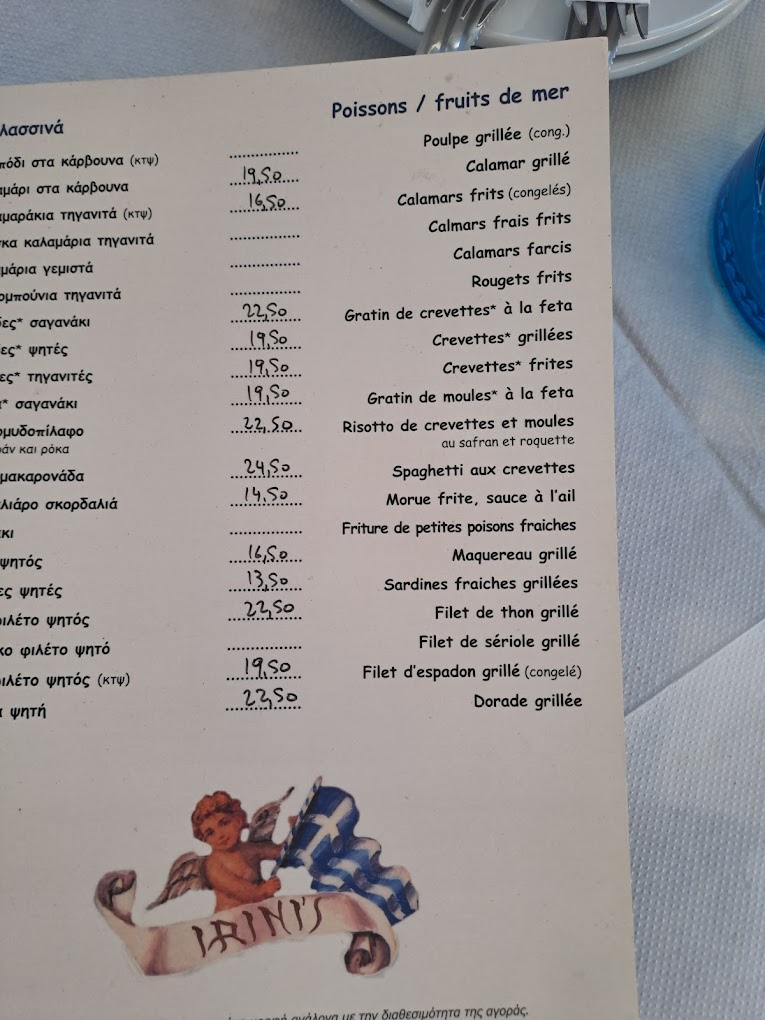 λασσινά Poissons / fruits de mer
πόδι στα κάρβουνα (κτψ) .............. Poulpe grillée (cong.)
αμάρι στα κάρβουνα 19,50 Calamar grillé
αμαράκια τηγανιτά (κτψ) 16,50 Calamars frits (congelés)
κα καλαμάρια τηγανιτά .............. Calmars frais frits
μάρια γεμιστά .............. Calamars farcis
ομπούνια τηγανιτά .............. Rougets frits
δες* σαγανάκι 22,50 Gratin de crevettes* à la feta
ες* ψητές 19,50 Crevettes* grillées
ες* τηγανιτές 19,50 Crevettes* frites
* σαγανάκι 19,50 Gratin de moules* à la feta
ομυδοπίλαφο 22,50 Risotto de crevettes et moules
άν και ρόκα au safran et roquette
μακαρονάδα 24,50 Spaghetti aux crevettes
λιάρο σκορδαλιά 14,50 Morue frite, sauce à l'ail
κι .............. Friture de petites poisons fraiches
ψητός 16,50 Maquereau grillé
ες ψητές 13,50 Sardines fraiches grillées
ιλέτο ψητός 22,50 Filet de thon grillé
κο φιλέτο ψητό .............. Filet de sériole grillé
ιλέτο ψητός (κτψ) 19,50 Filet d'espadon grillé (congelé)
ψητή 22,50 Dorade grillée
IRINI'S
ανάλογα με την διαθεσιμότητα της αγοράς.